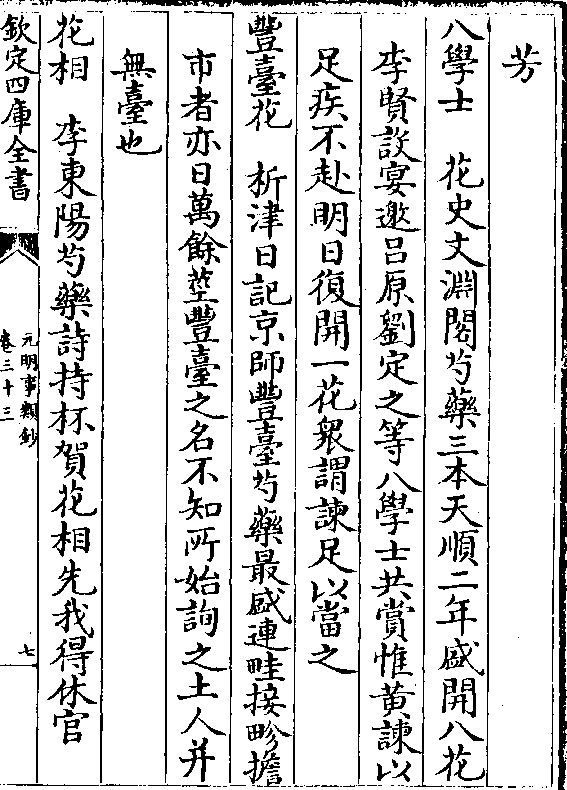 芳
八學士　花史文淵閣芍藥三本天順二年盛開八花
李賢設宴邀吕原劉定之等八學士共賞惟黄諫以
足疾不赴明日復開一花衆謂諫足以當之
豐臺花　析津日記京師豐臺芍藥最盛連畦接畛擔
市者亦日萬餘莖豐臺之名不知所始詢之土人并
無臺也
花相　李東陽芍藥詩持杯賀花相先我得休官
欽定四庫全書
元明事類鈔
卷三十三
七